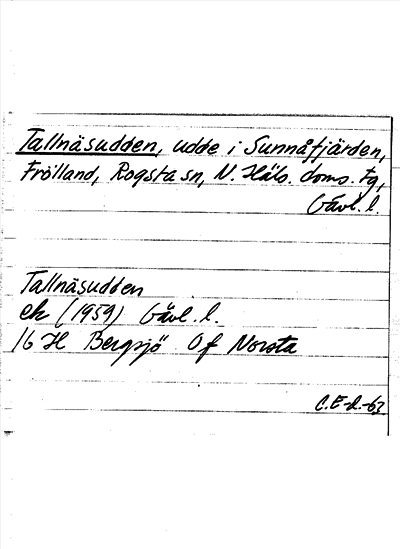 Tallnäsudden, udde i Sunnåfjärden,
Frölland, Rogsta sn, N. Häls. doms. fg,
Gävl. l.
Tallnäsudden
ek (1959) Gävl. l.
16 H Bergsjö Of Norsta
C.E-d.-63